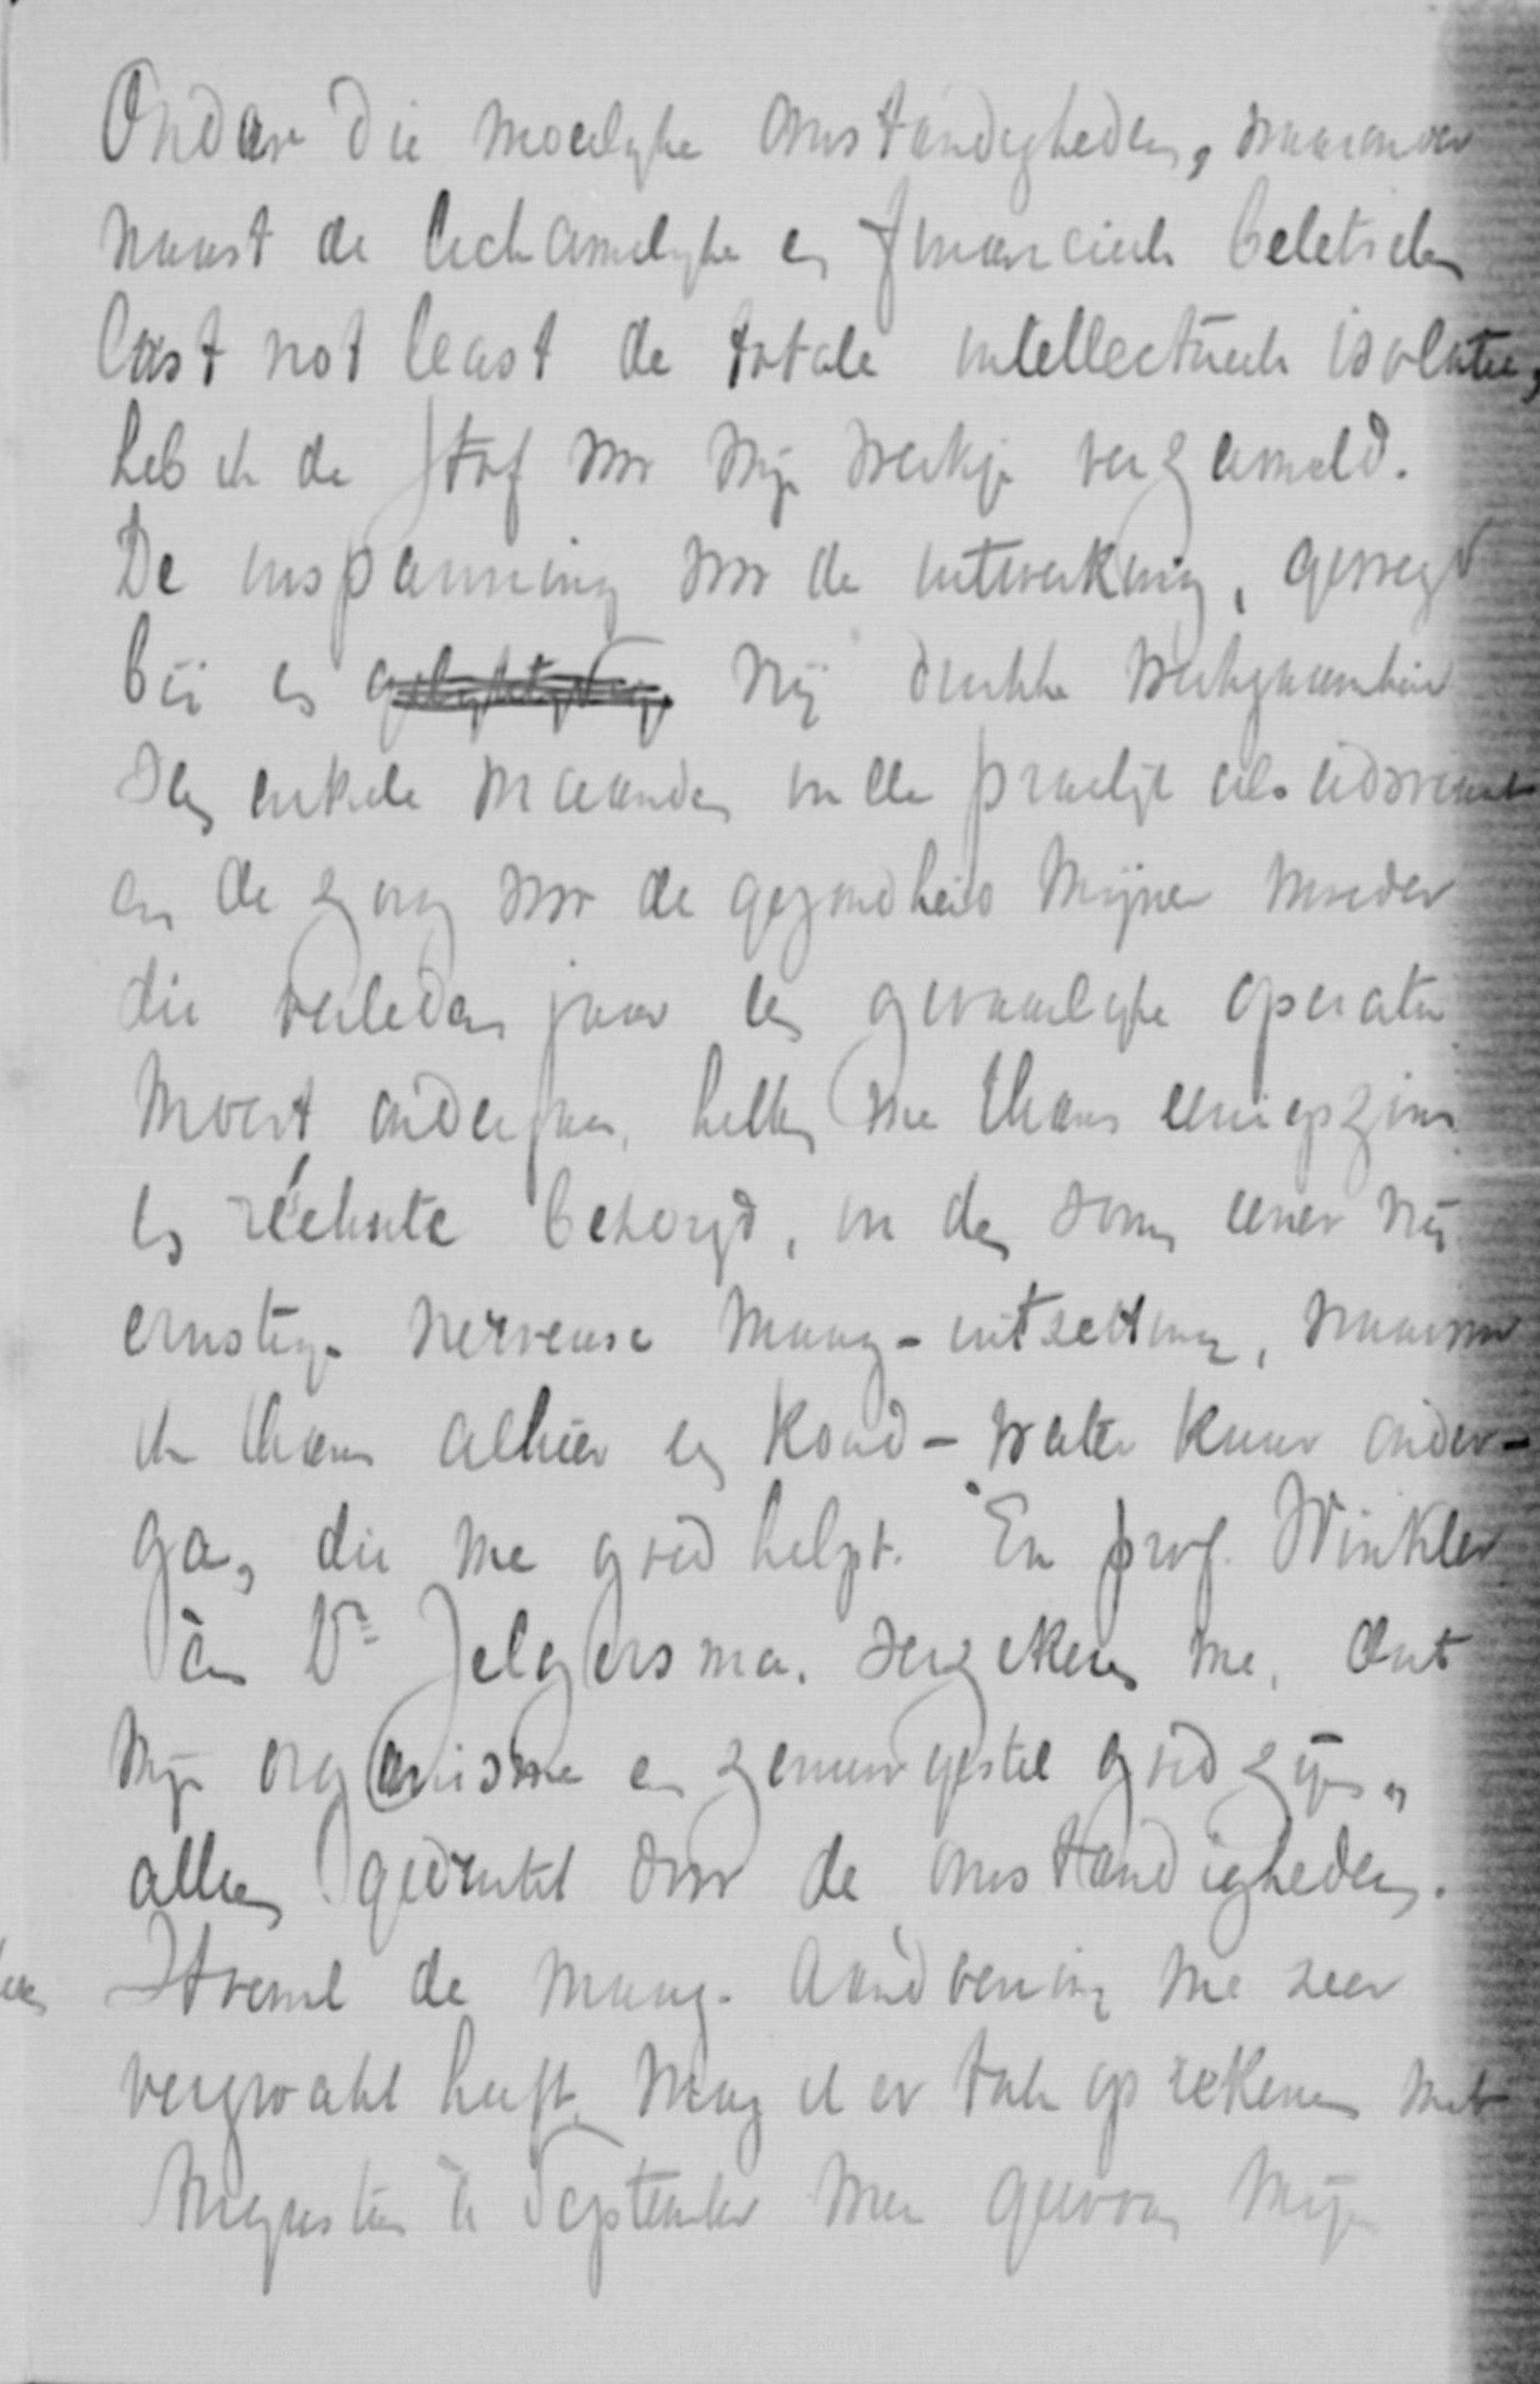 Onder die moeilijke omstandigheden, waaronder
naast de lichamelijke en financieele beletselen
last not least de totale intellectueele isolatie,
heb ik de stof voor mijn werkje verzameld.
De inspanning voor de uitwerking, gevoegd
bij en mij drukke werkzaamheid
van enkele maanden in de praktijk als advocaat
en de zorg voor de gezondheid mijner moeder
die verleden jaar een gevaarlijke operatie
moest ondergaan, hebben me thans eenigszins
een réchute bezorgd, in den vorm eener vrij
ernstige nerveuse maag-uitzetting, waarvoor
ik thans alhier een koud-water kuur onder-
ga, die me goed helpt. En prof. Winkler
én Dr Jelgersma. verzekeren me, dat
mijn organisme en zenuwgestel goed zijn,
alleen gedrukt door de omstandigheden.
Hoewel de maag-aandoening me zeer
verzwakt heeft, mag ik er toch op rekenen met
Augustus à September mee gewoon mijn